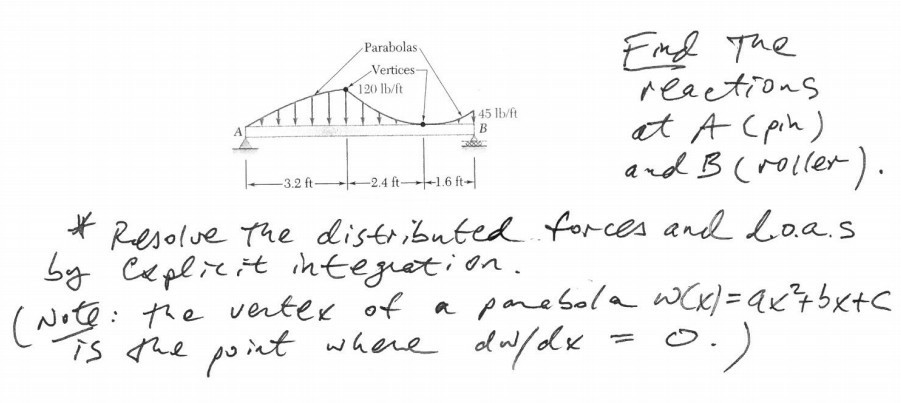 Parabolas
Vertices
120 lb/ft
45 lb/ft
A
B
3.2 ft
2.4 ft
1.6 ft
Find the
reactions
at A (pin)
and B (roller).
* Resolve the distributed forces and l.o.a.s
by explicit integration.
(Note: the vertex of a parabola w(x)=ax²+bx+c
is the point where dw/dx = 0.)